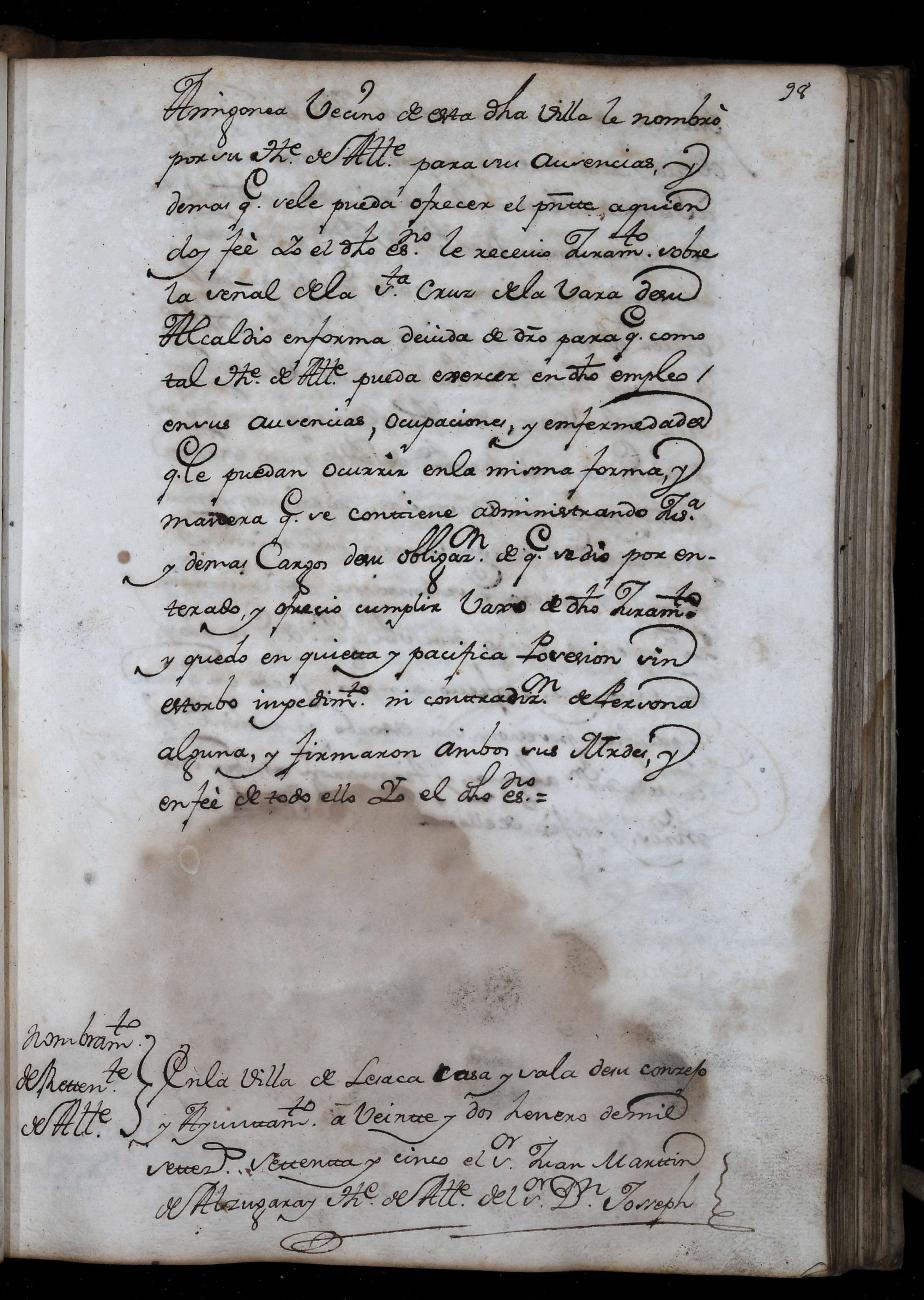 98
Aringonea Vecino de esta dha Villa le nombrò
por su The. de Alle. para sus Ausencias, y
demas q. sele pueda ofrecer el pñtte, aquien
doy feè Yo el dho esno. le receuio Juramto. sobre
la señal dela sta. Cruz dela Vara desu
Alcaldio enforma deuida de dro para q. como
tal The. de Alle. pueda exercer en dho empleo
ensus Ausencias, Ocupaciones, y emfermedades
q. le puedan Ocurrir enla misma forma, y
manera q. se conttiene administrando Jusa.
y demas Cargos desu obligazn. de q. se dio por en-
terado, y ofrecio cumplir Vaxo de dho Juramto.
y quedo en quietta y pacifica Posesion sin
estorbo impedimto. ni conttradizn. de Persona
alguna, y firmaron Ambos sus Mrdes, y
enfeè de todo ello Yo el dho esno. =
Nombramto.
de Retten.te
de Alle.
Enla Villa de Lesaca Casa y sala desu conzejo
y Ayunttamto. à Veintte y dos henero demil
settez.s settentta y cinco el sor. Juan Marttin
de Alzugaray The. de Alle. del sor. Dn. Josseph